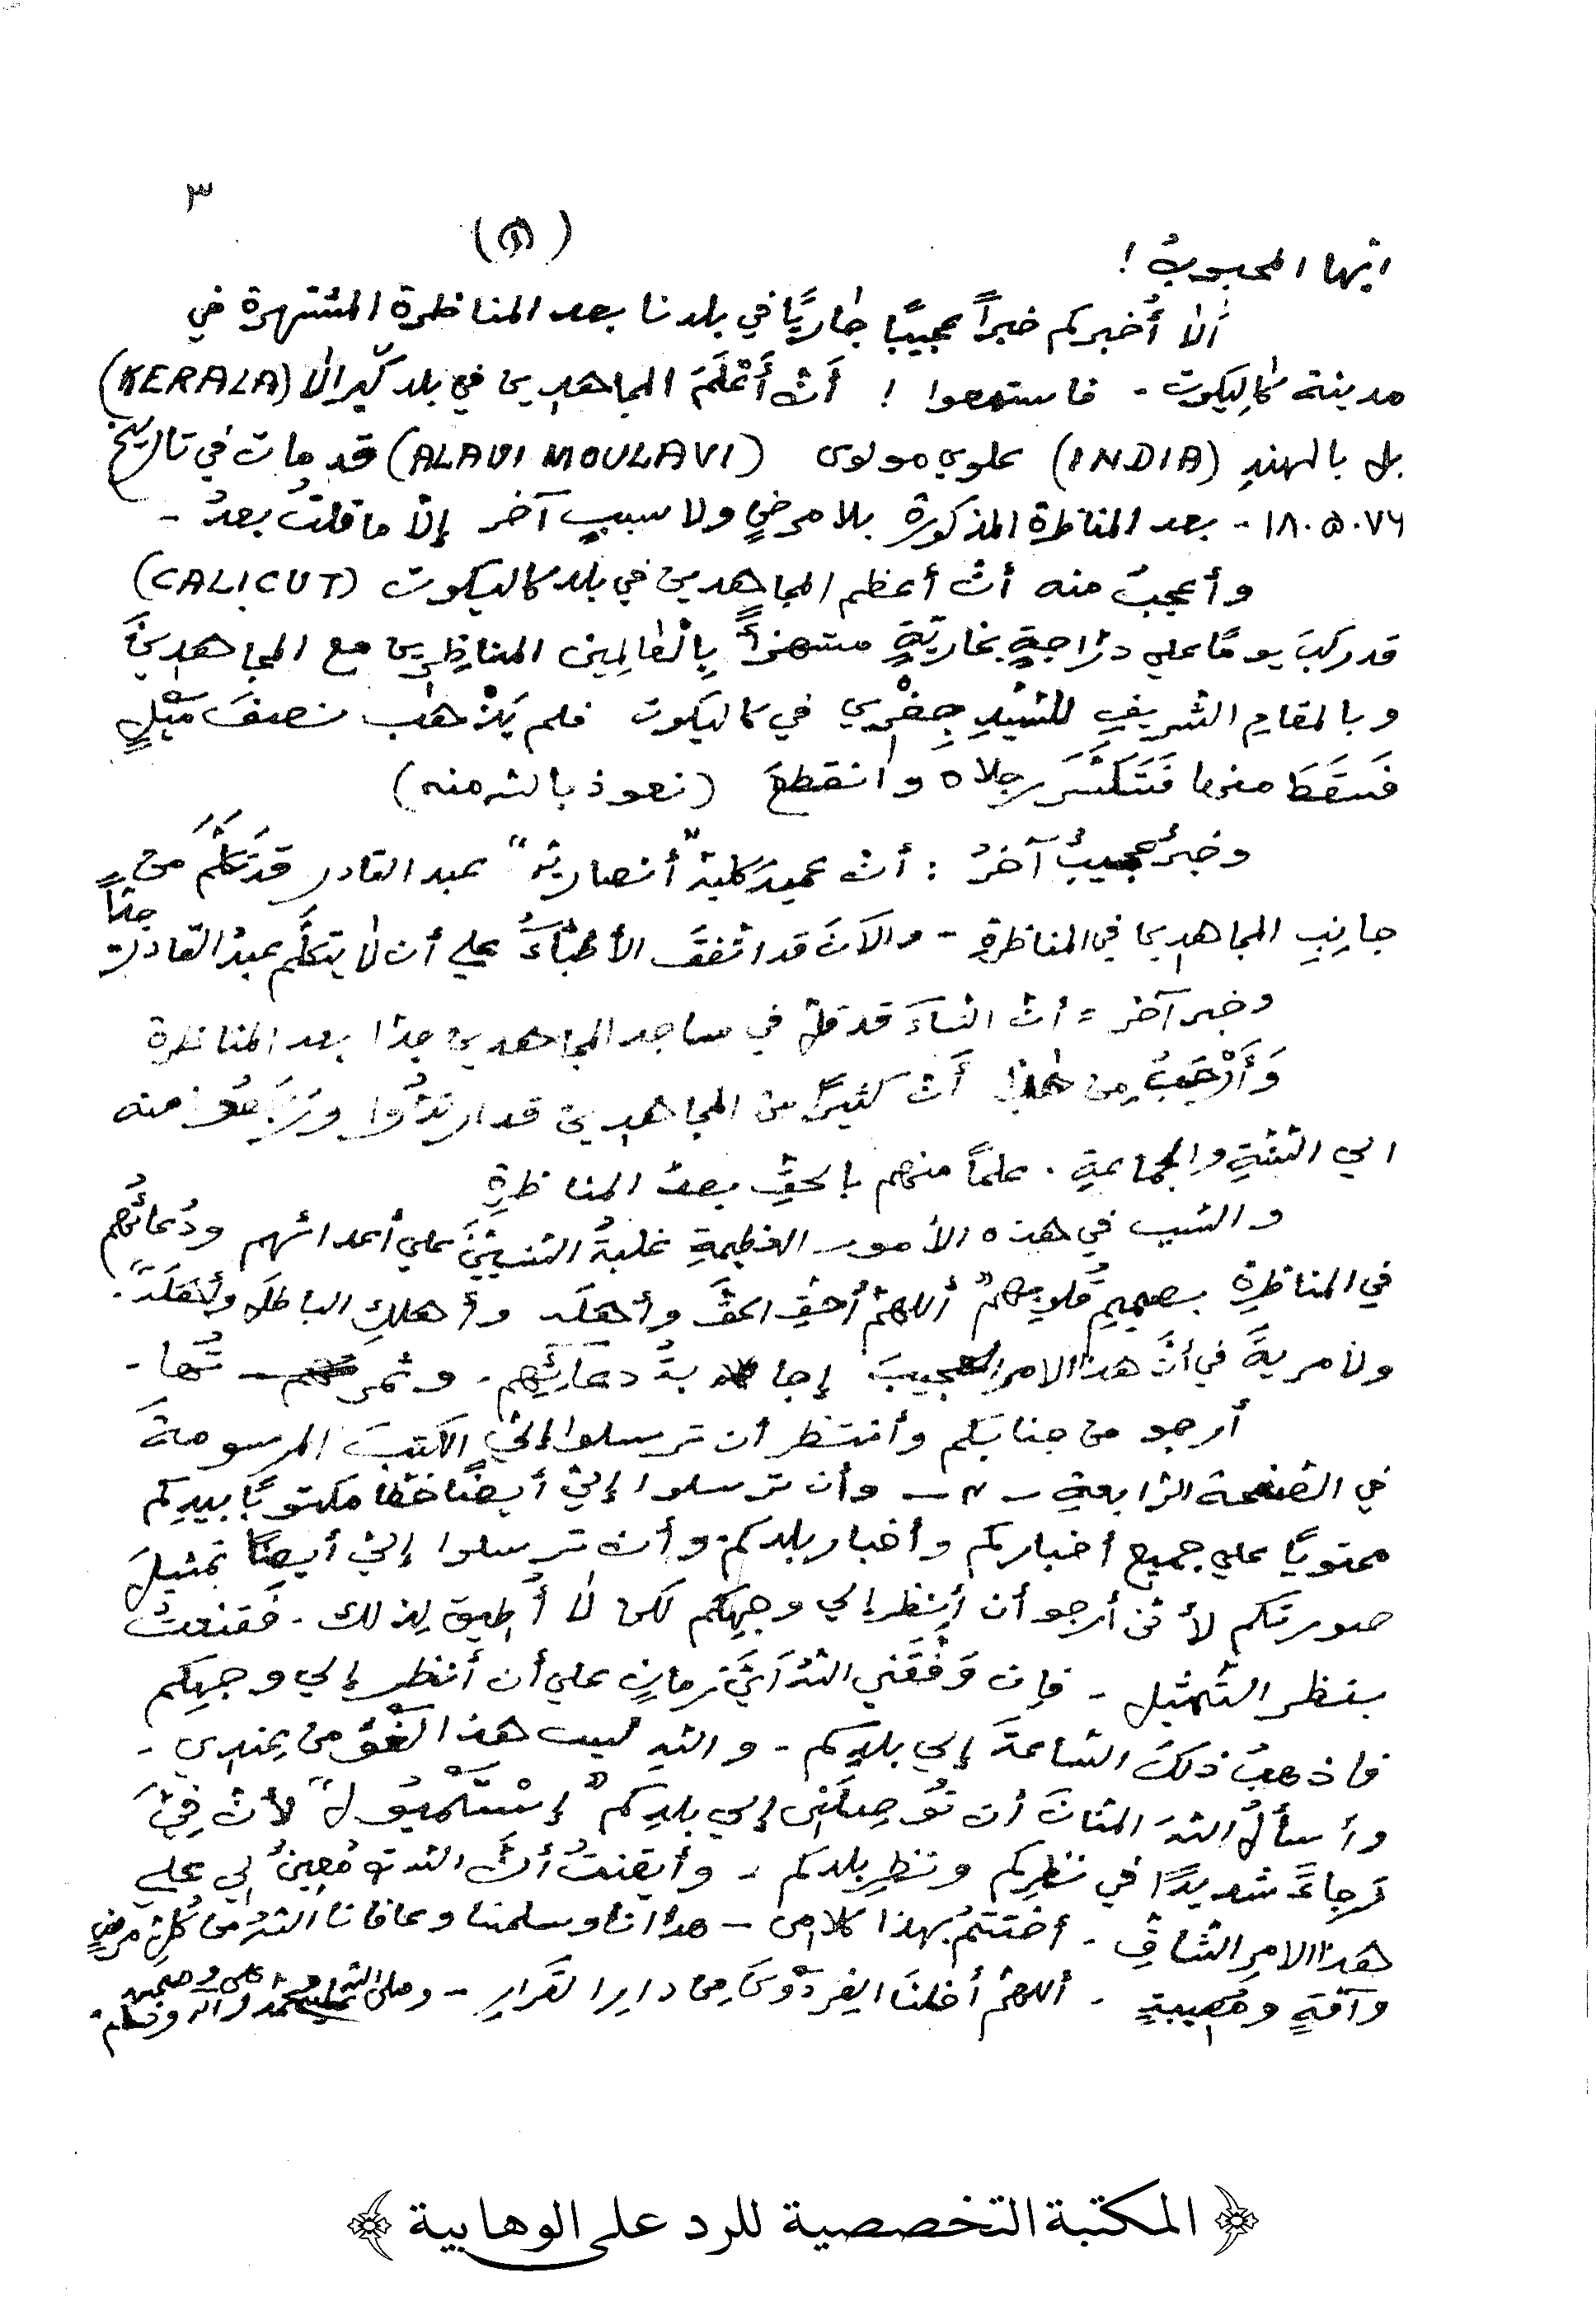 ٣
(٣)
ايها المحبوبُ !
ألا أُخبركم خبراً عجيبًا جاريًا في بلدنا بعد المناظرة المشتهرة في
مدينة كاليكوت - فاستمعوا ! أنّ أَعْلَمَ المجاهدين في بلد كيرالا (KERALA)
بل بالهندِ (INDIA) علوي مولوى (ALAVI MOULAVI) قد مات في تاريخ
١٨.٥.٧٦ - بعد المناظرة المذكورة بلا مرضٍ ولا سببٍ آخر إلّا ما قلتُ بعدُ -
وأعجبُ منه أنّ أعظم المجاهدين في بلد كاليكوت (CALICUT)
قد ركبَ يومًا على درّاجةٍ بخاريّةٍ مستهزأً بِالْعالِمِين المناظِرين مع المجاهدينَ
وبالمقامِ الشريفِ للسّيّدِ جِفْرِي في كاليكوت فلم يَذْهَب نصفَ مَيْلٍ
فَسَقَطَ منها فَتَكَسَّرَ رجلاه وانقطعَ (نعوذ بالله منه)
وخبرٌ عجيبٌ آخرُ : أنّ عميدَ كلية "أنصارية" عبد القادر قد تكلَّمَ من
جانِبِ المجاهدين في المناظرةِ - والآنَ قد اتّفقَ الأطبّاءُ على أن لا يتكلّم عبدُ القادر جدّاً
وخبر آخر = أنّ النساءَ قد قلّ في مساجد المجاهدين جدّا بعد المناظرة
وَأَعْجَبُ مِن هذا أنّ كثيرًا من المجاهدين قد ارتدُّوا ورَجَعُوا منه
الى السّنّةِ والجماعةِ . علماً منهم بالحقِّ بعدَ المناظرةِ
والسّبب في هذه الأمور العظيمةِ غلبةُ السّنيّينَ على أعدائهم ودُعائُهم
في المناظرةِ بصميمِ قلوبِهم " أللهمّ أحقِّ الحقَّ وأهلَه وأهلكِ الباطلَ وأهلَه " .
ولا مريةَ في أنَّ هذا الامرَ العجيبَ إجابةُ دعائِهم - وثمرتُها -
أرجو من جنابكم وأنتظر أن ترسلوا إليّ الكتبَ المرسومةَ
في الصّفحة الرّابعةِ - ٤ - وأن ترسلوا إليّ أيضًا خطّا مكتوبًا بيدِكم
محتويًا على جميع أخباركم وأخبار بلدكم. وأن ترسلوا إليّ أيضًا تمثيلَ
صورتكم لأنّى أرجو أن أنظر إلى وجهِكم لكن لا أطيق لِذلك - فَقنعتُ
بنظر التّمثيل - فإن وَفَّقَني اللهُ أيَّ زمانٍ على أن أنظر إلى وجهِكم
فاذهبُ ذلكَ السّاعةَ إلى بلدِكم - واللهِ ليس هذا لَغْوٌ من عِندي -
وأسألُ اللهَ المنّانَ أن تُوصِلَنِى إلى بلدِكم " إسْتَنْبُول " لأنّ فِيَّ
رَجاءً شديدًا في نظرِكم ونظرِ بلدكم - وأيقنتُ أنَّ الله تع مُعِينٌ لي على
هذا الامرِ الشّاقِّ - أختتمُ بهذا كلامى - هدانا وسلمنا وعافانا اللهُ من كُلِّ مرضٍ
وآفةٍ ومُصيبةٍ - أللهمّ أدخلنَا الفِرْدَوسَ مِن دارِ القَرارِ - وصلى الله على محمد وآله وصحبه وسلم.
المكتبة التخصصية للرد على الوهابية